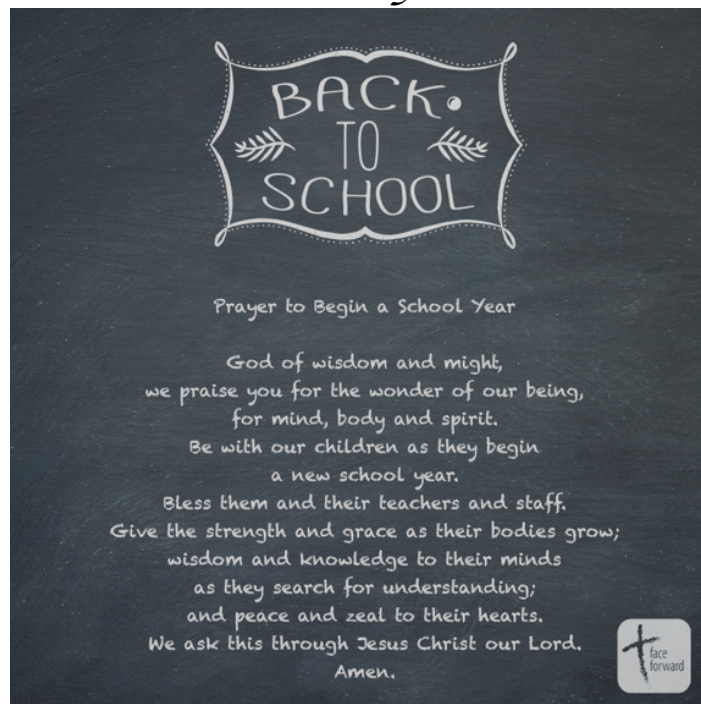 BACK
TO
SCHOOL
Prayer to Begin a School Year
God of wisdom and might,
we praise you for the wonder of our being,
for mind, body and spirit.
Be with our children as they begin
a new school year.
Bless them and their teachers and staff.
Give the strength and grace as their bodies grow;
wisdom and knowledge to their minds
as they search for understanding;
and peace and zeal to their hearts.
We ask this through Jesus Christ our Lord.
Amen.
face
forward